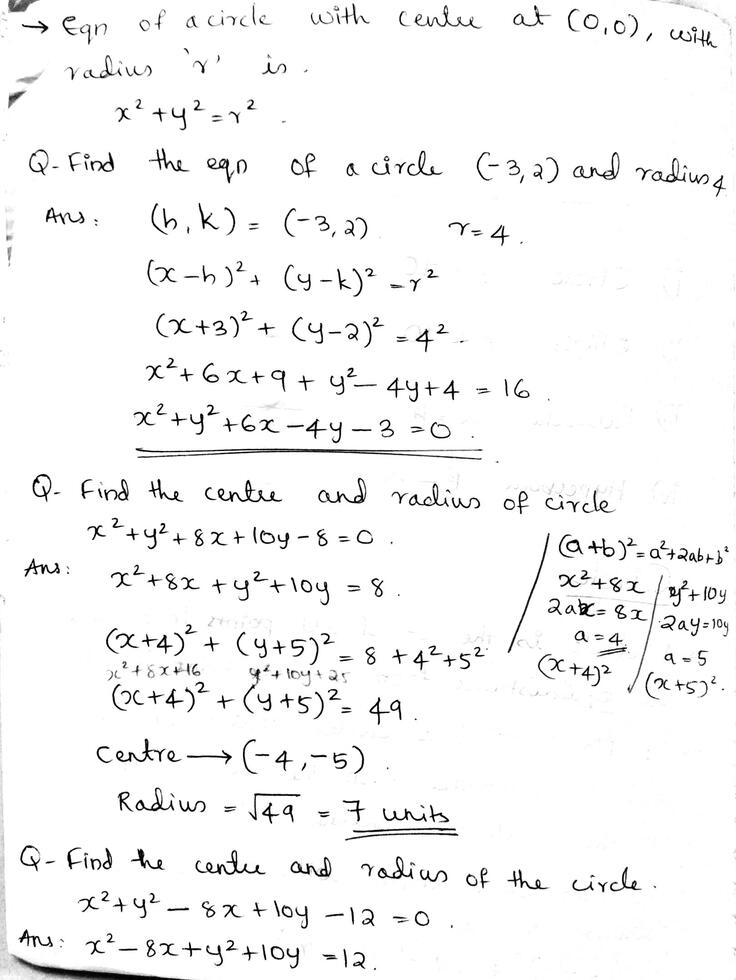 → Eqn of a circle with centre at (0,0), with
radius 'r' is.
x² + y² = r².
Q- Find the eqn of a circle (-3,2) and radius 4
Ans: (h,k) = (-3,2) r=4.
(x-h)² + (y-k)² = r²
(x+3)² + (y-2)² = 4².
x² + 6x + 9 + y² - 4y + 4 = 16.
x² + y² + 6x - 4y - 3 = 0.
Q- Find the centre and radius of circle
x² + y² + 8x + 10y - 8 = 0.
Ans: x² + 8x + y² + 10y = 8.
(x+4)² + (y+5)² = 8 + 4² + 5²
x² + 8x + 16 y² + 10y + 25
(x+4)² + (y+5)² = 49.
Centre → (-4,-5)
Radius = √49 = 7 units
(a+b)² = a² + 2ab + b²
x² + 8x / y² + 10y
2ax = 8x / 2ay = 10y
a = 4 / a = 5
(x+4)² / (x+5)².
Q- Find the centre and radius of the circle.
x² + y² - 8x + 10y - 12 = 0.
Ans: x² - 8x + y² + 10y = 12.